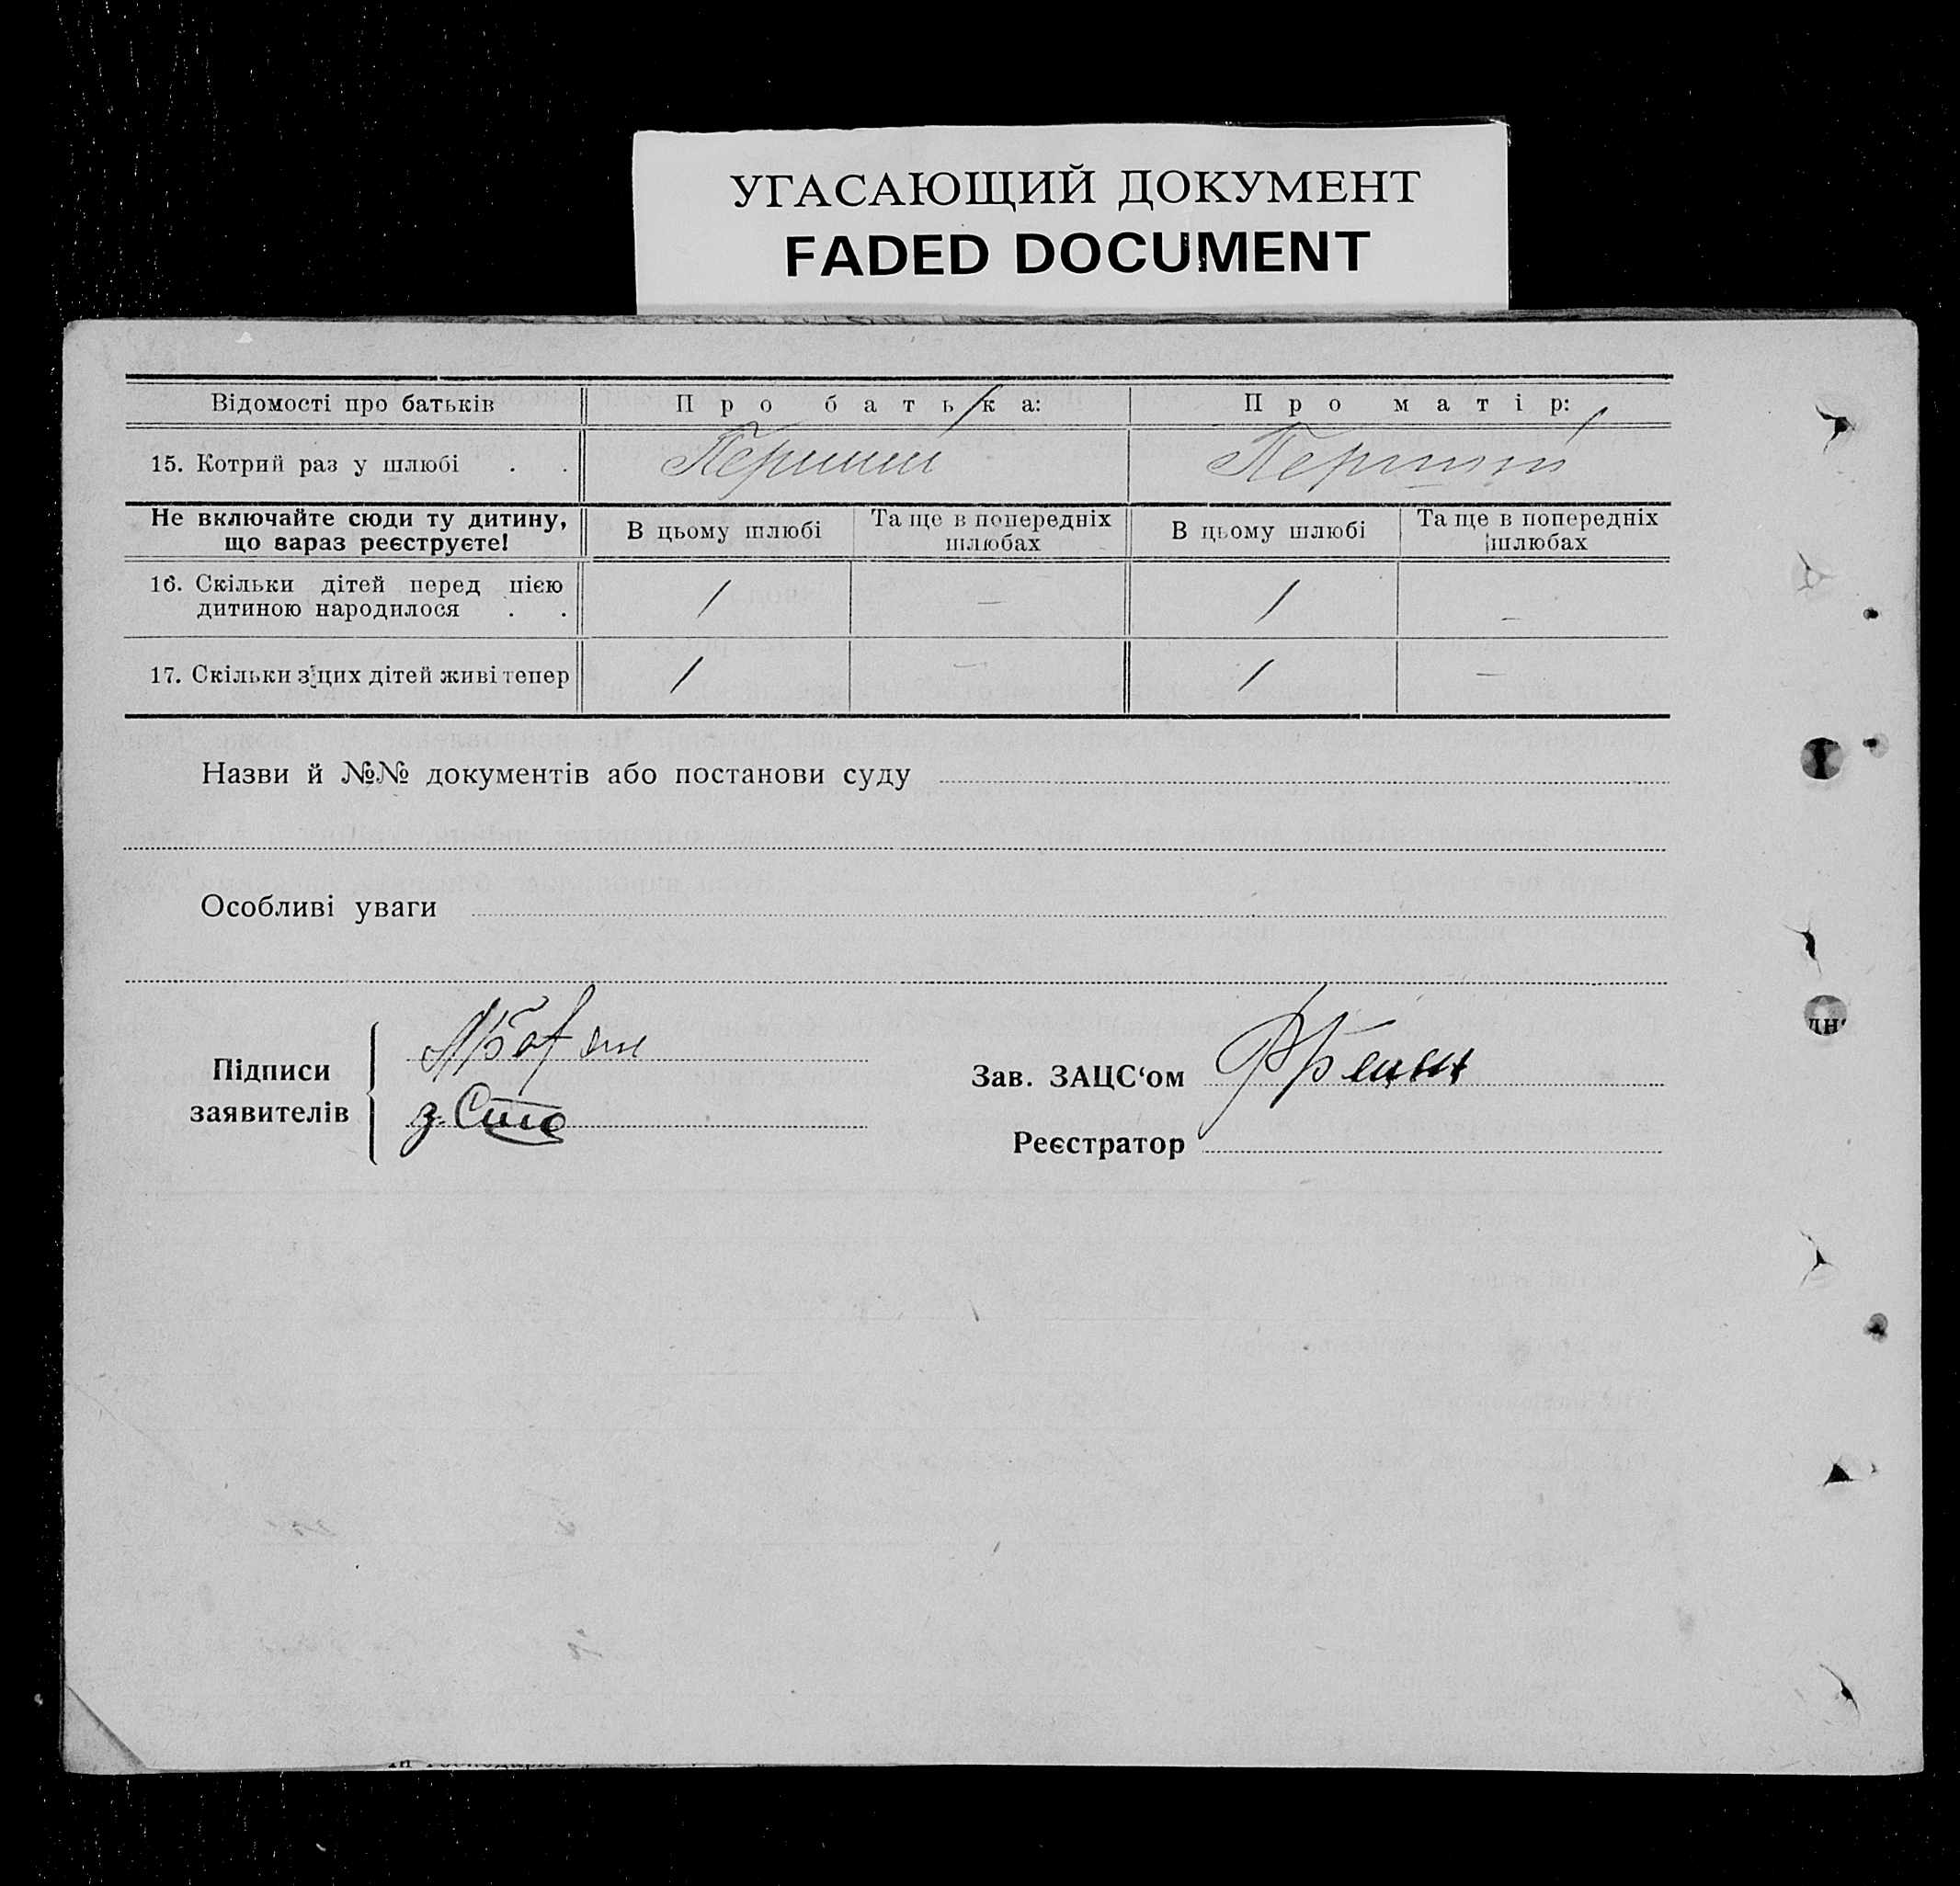 УГАСАЮЩИЙ ДОКУМЕНТ
FADED DOCUMENT
Відомості про батьків Про батька: Про матір:
15. Котрий раз у шлюбі . . Перший Перший
Не включайте сюди ту дитину, що зараз реєструєте! В цьому шлюбі Та ще в попередніх шлюбах В цьому шлюбі Та ще в попередніх шлюбах
16. Скільки дітей перед цією
дитиною народилося . . 1 — 1 —
17. Скільки з цих дітей живі тепер 1 — 1 —
Назви й №№ документів або постанови суду
Особливі уваги
Підписи
заявителів
Зав. ЗАЦС‘ом
Реєстратор